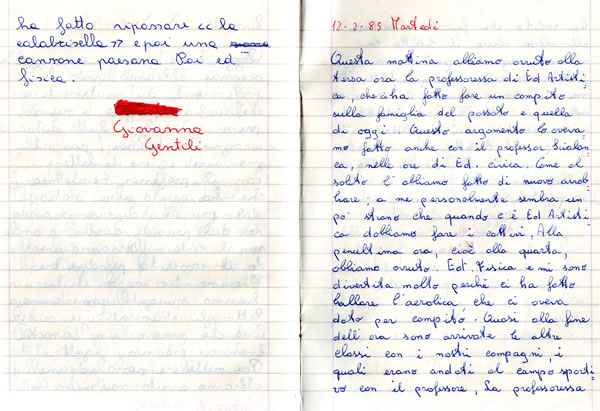 ha fatto ripassare << la
calabrisella >> e poi una
canzone paesana Poi ed
fisica.
Giovanna
Gentili
12-2-85 Martedì
Questa mattina abbiamo avuto alla
terza ora la professoressa di Ed Artisti
ca, che ci ha fatto fare un compito
sulla famiglia del passato e quella
di oggi. Questo argomento lo aveva
mo fatto anche con il professor
ca, nelle ore di Ed. civica. Come al
solito l'abbiamo fatto di nuovo
; a me personalmente sembra un
po' strano che quando c'è Ed Artisti
ca dobbiamo fare i cattivi, Alla
penultima ora, cioè alla quarta,
abbiamo avuto. Ed. Fisica e mi sono
divertita molto perché ci ha fatto
ballare l'aerobica che ci aveva
dato per compito. Quasi alla fine
dell'ora sono arrivate le altre
classi con i nostri compagni, i
quali erano andati al campo sporti
vo con il professore, La professoressa